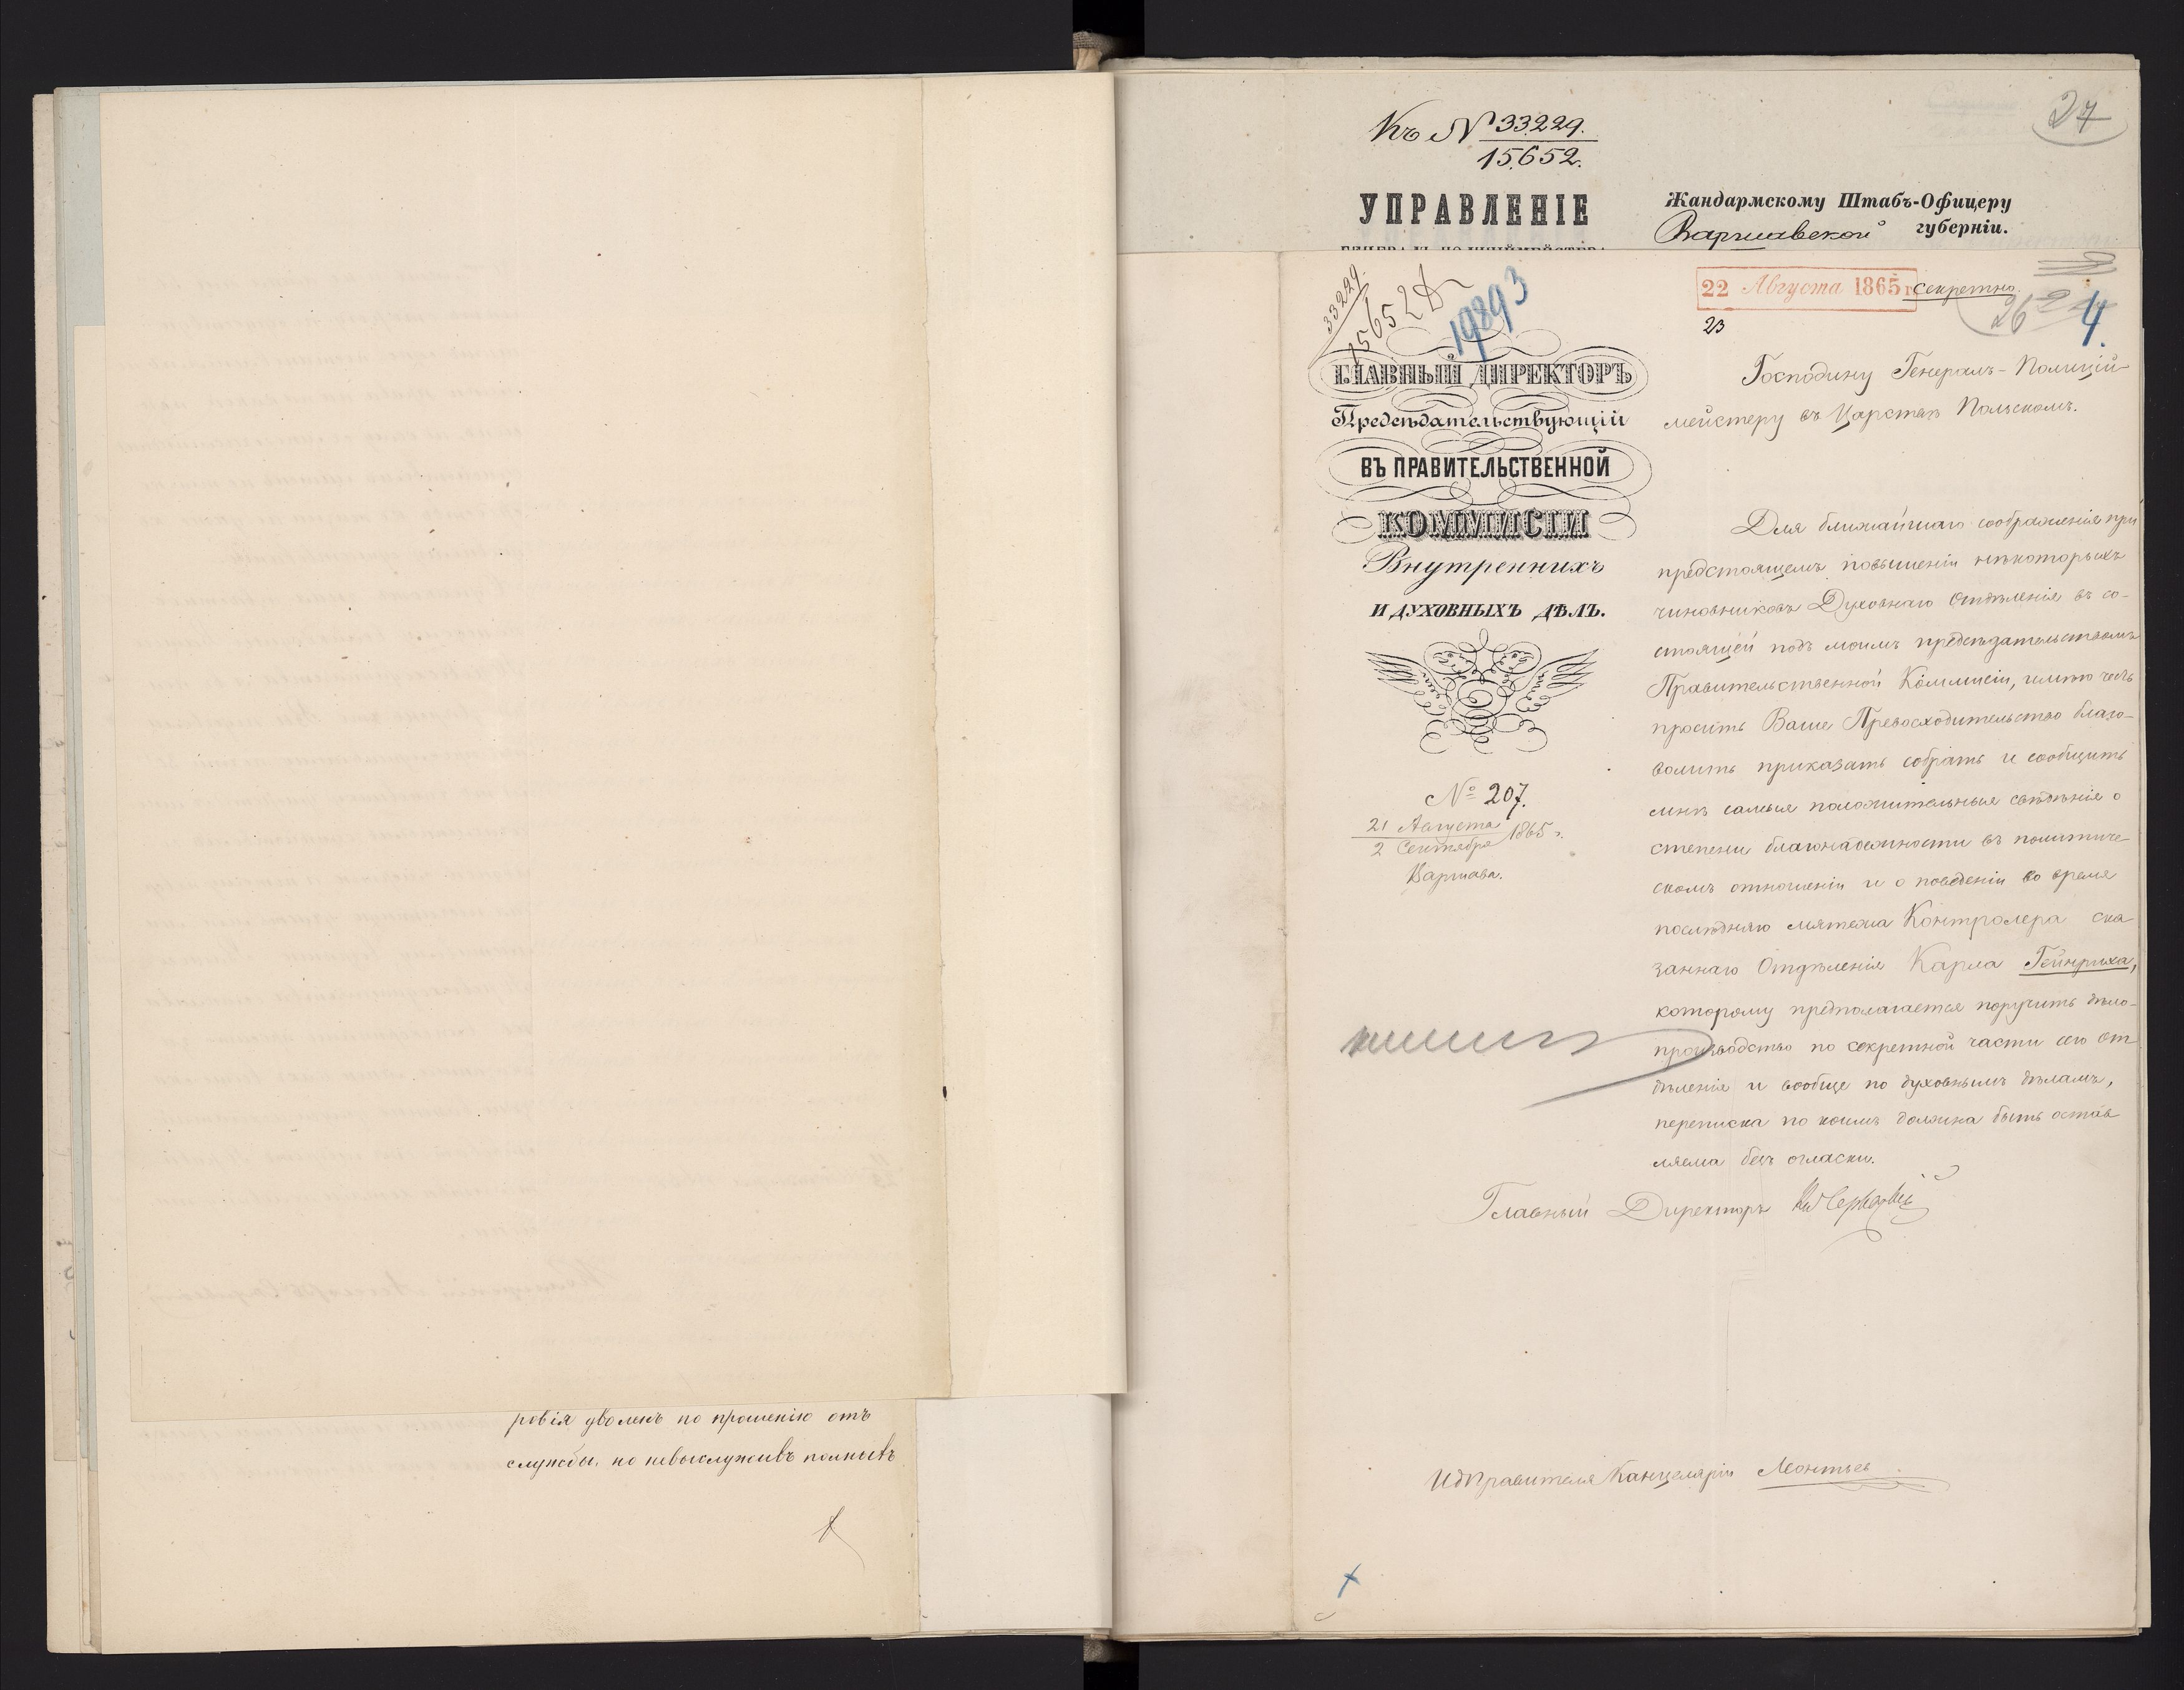 ровія уволенъ по прошенію отъ
службы, но невыслуживъ полныхъ
27
Къ № 33229.
15652.
УПРАВЛЕНІЕ
Жандармскому Штабъ-Офицеру
Варшавской губерніи.
33229
15652
19893
22 Августа 1865 г.
Секретно.
23
26
4.
ГЛАВНЫЙ ДИРЕКТОРЪ
Предсѣдательствующій
ВЪ ПРАВИТЕЛЬСТВЕННОЙ
КОММИСІИ
Внутреннихъ
И ДУХОВНЫХЪ ДѢЛЪ.
№ 207.
21 Августа
2 Сентября 1865 г.
Варшава.
Господину Генералъ-Полицій-
мейстеру въ Царствѣ Польскомъ.
Для ближайшаго соображенія при
предстоящемъ повышеніи нѣкоторыхъ
чиновниковъ Духовнаго Отдѣленія въ со-
стоящей подъ моимъ предсѣдательствомъ
Правительственной Коммисіи, имѣю честь
просить Ваше Превосходительство благо-
волить приказать собрать и сообщить
мнѣ самыя положительныя свѣдѣнія о
степени благонадежности въ политиче-
скомъ отношеніи и о поведеніи во время
послѣдняго мятежа Контролера ска
заннаго Отдѣленія Карла Гейнриха,
которому предполагается поручить дѣло-
производство по секретной части сего От
дѣленія и вообще по духовнымъ дѣламъ,
переписка по коимъ должна быть остав
ляема безъ огласки.
Главный Директоръ
И д Правителя Канцеляріи Леонтьев